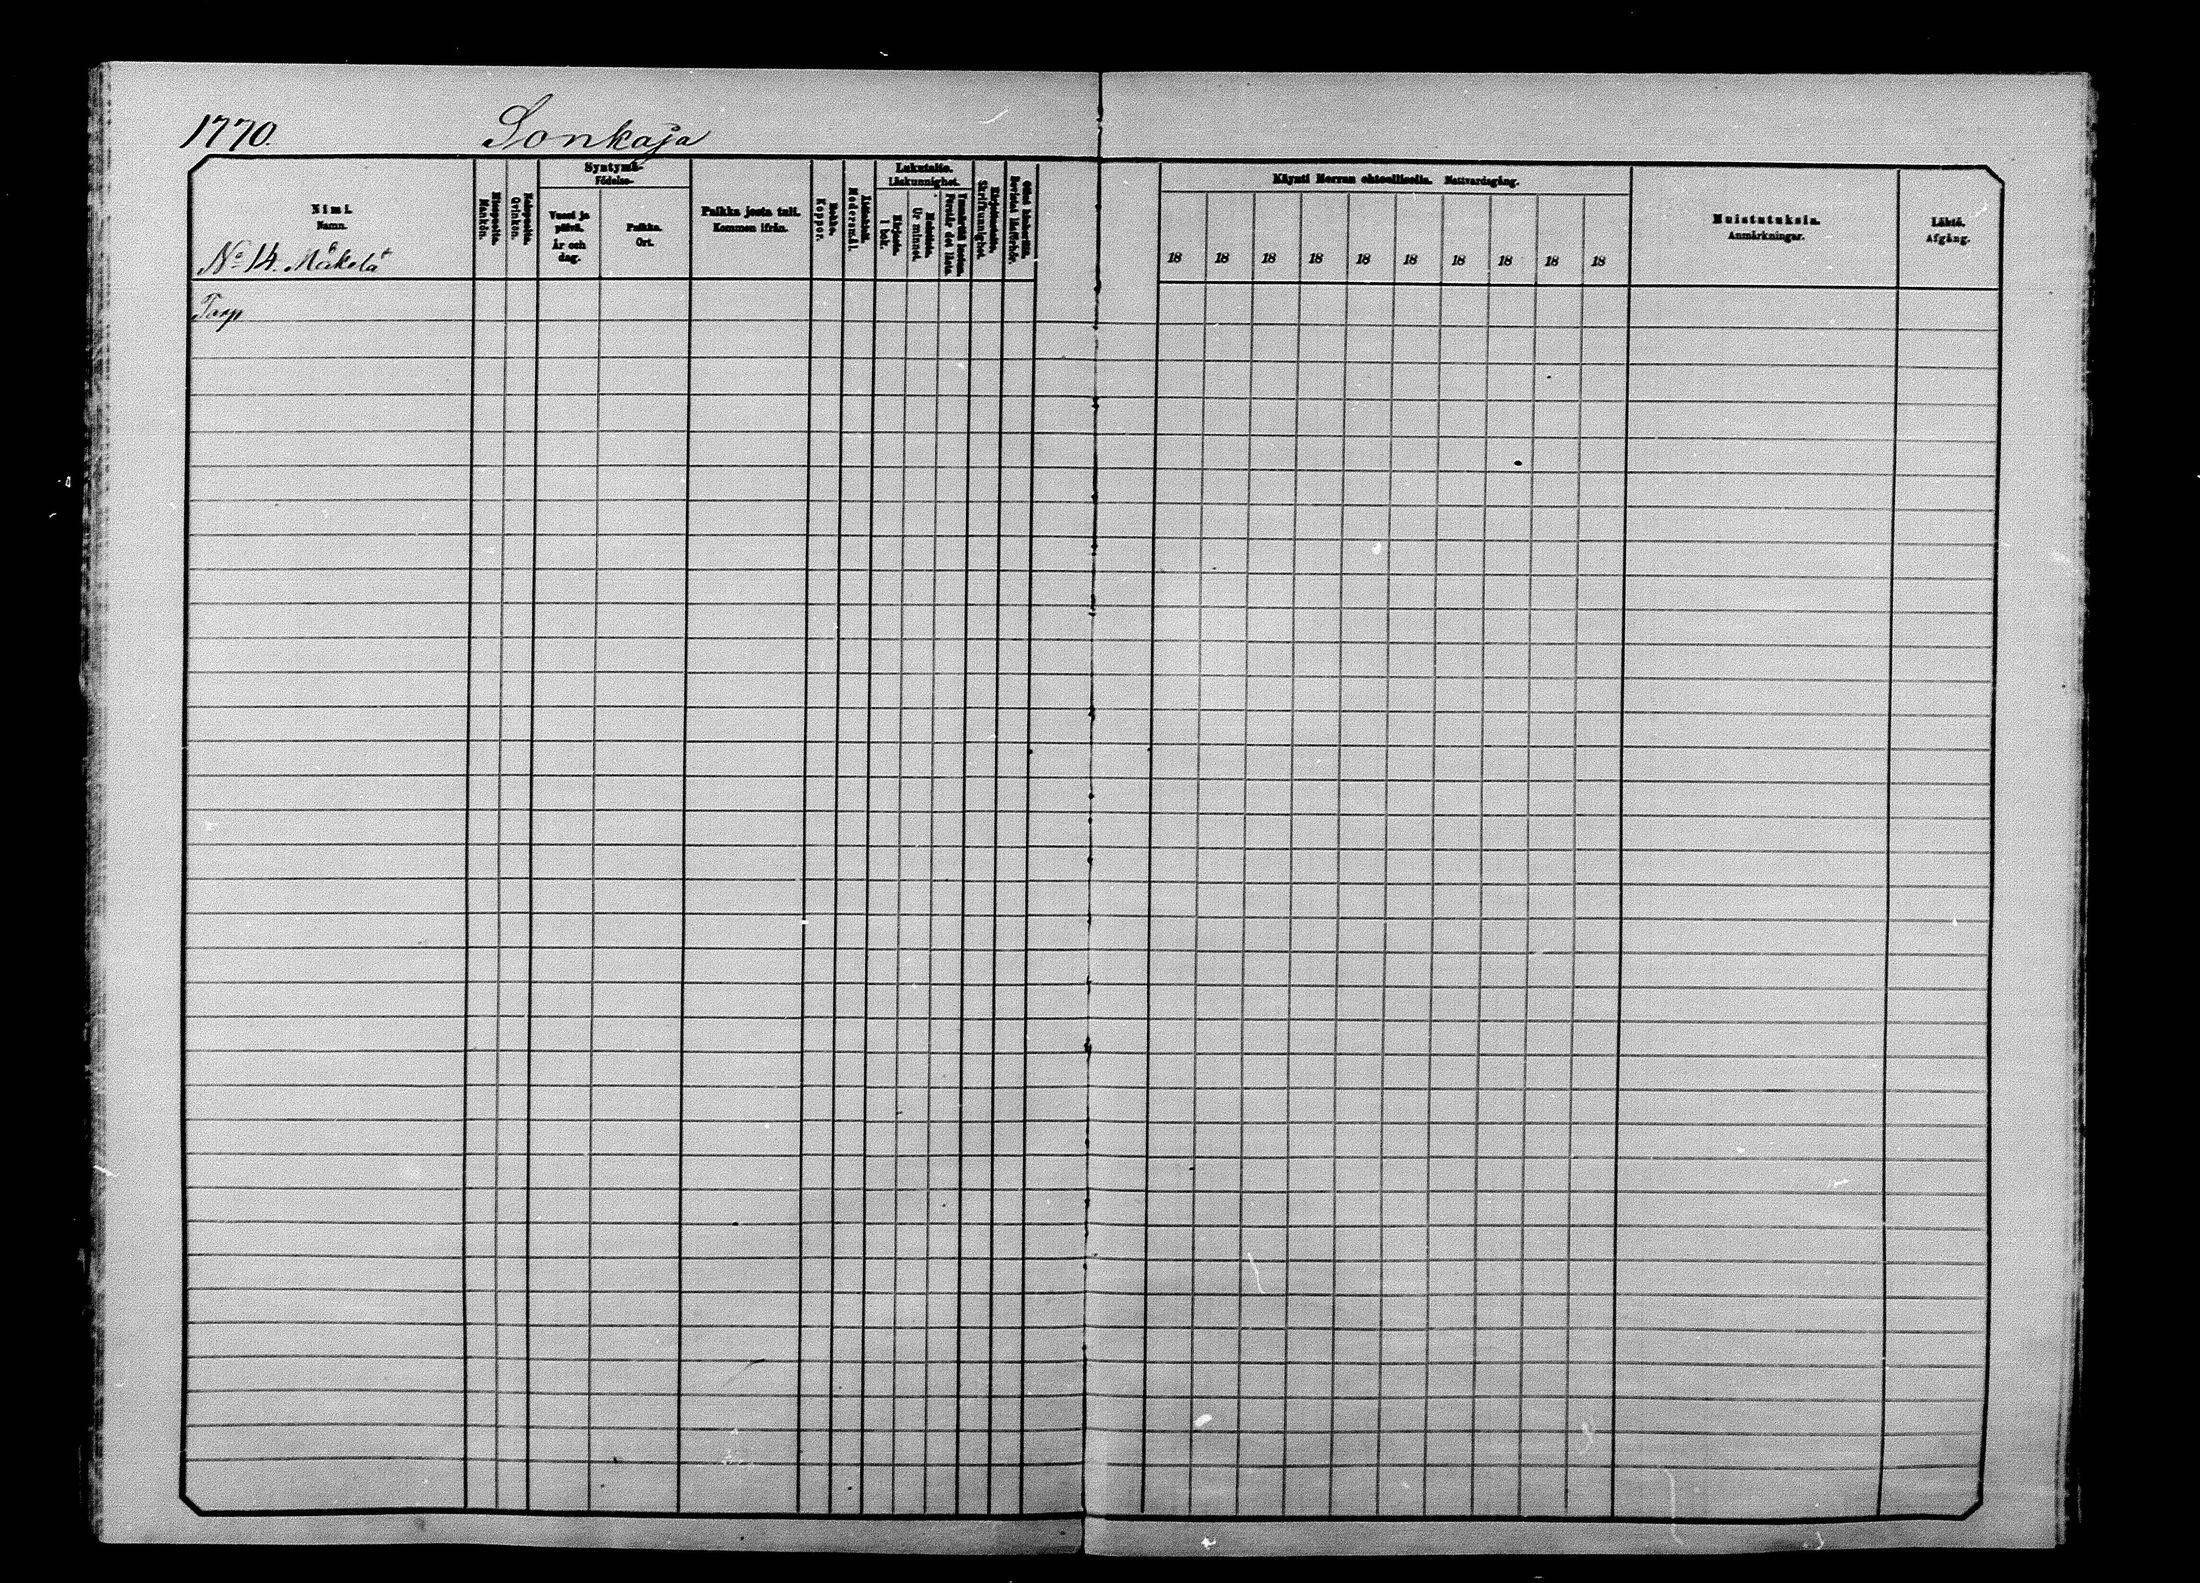 1770. Sonkaja
Nimi.
Namn.
No 14. Mäkelä
Miespuolia.
Mankön.
Naispuolia.
Qvinkön.
Syntymä-
Födelse-
Vuosi ja
päivä.
År och
dag.
Paikka.
Ort.
Paikka josta tuli.
Kommen ifrån.
Rokko.
Koppor.
Äidinkieli.
Modersmål.
Lukutaito.
Läskunnighet.
Kirjasta.
I bok.
Ur minnet
Förstår det lästa.
Kirjoitustaito.
Skrifkunnighet
Käynti Herran ehtoollisella. Nattvardsgång.
18 18 18 18 18 18 18 18 18 18
Muistutuksia.
Anmärkningar.
Lähtö.
Afgång.
Torp